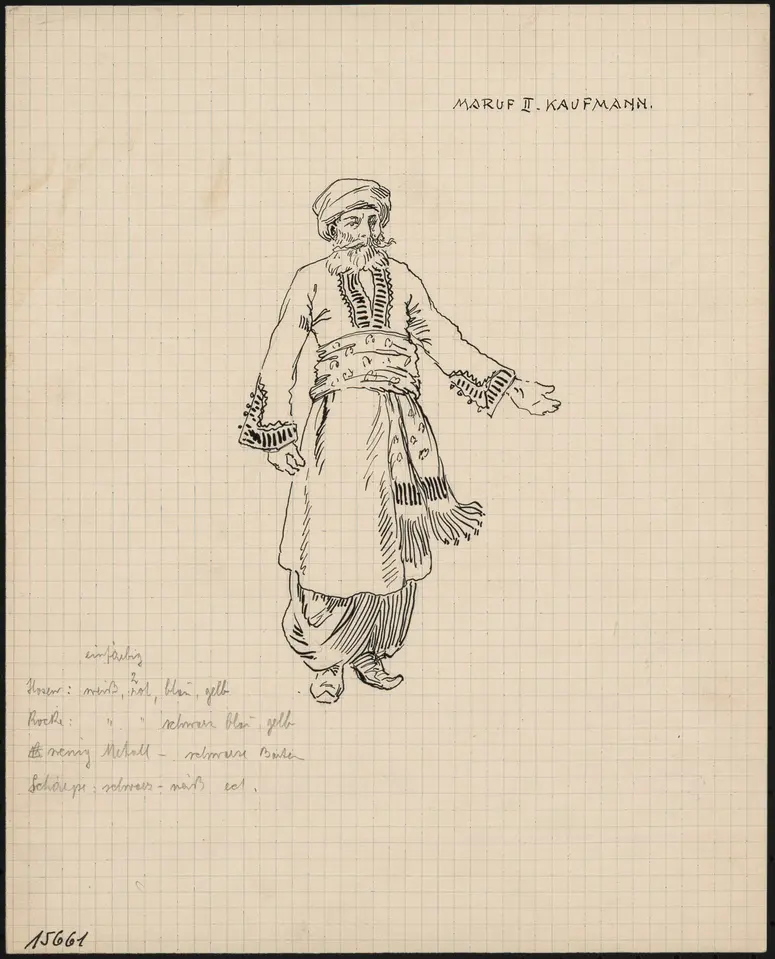 MARUF II. KAUFMANN.
einfärbig
Hosen: weiß, rot, blau, gelb
2
Röcke: " " schwarz blau, gelb
wenig Metall - schwarze Borten
Schärpe: schwarz - weiß ect.
15661